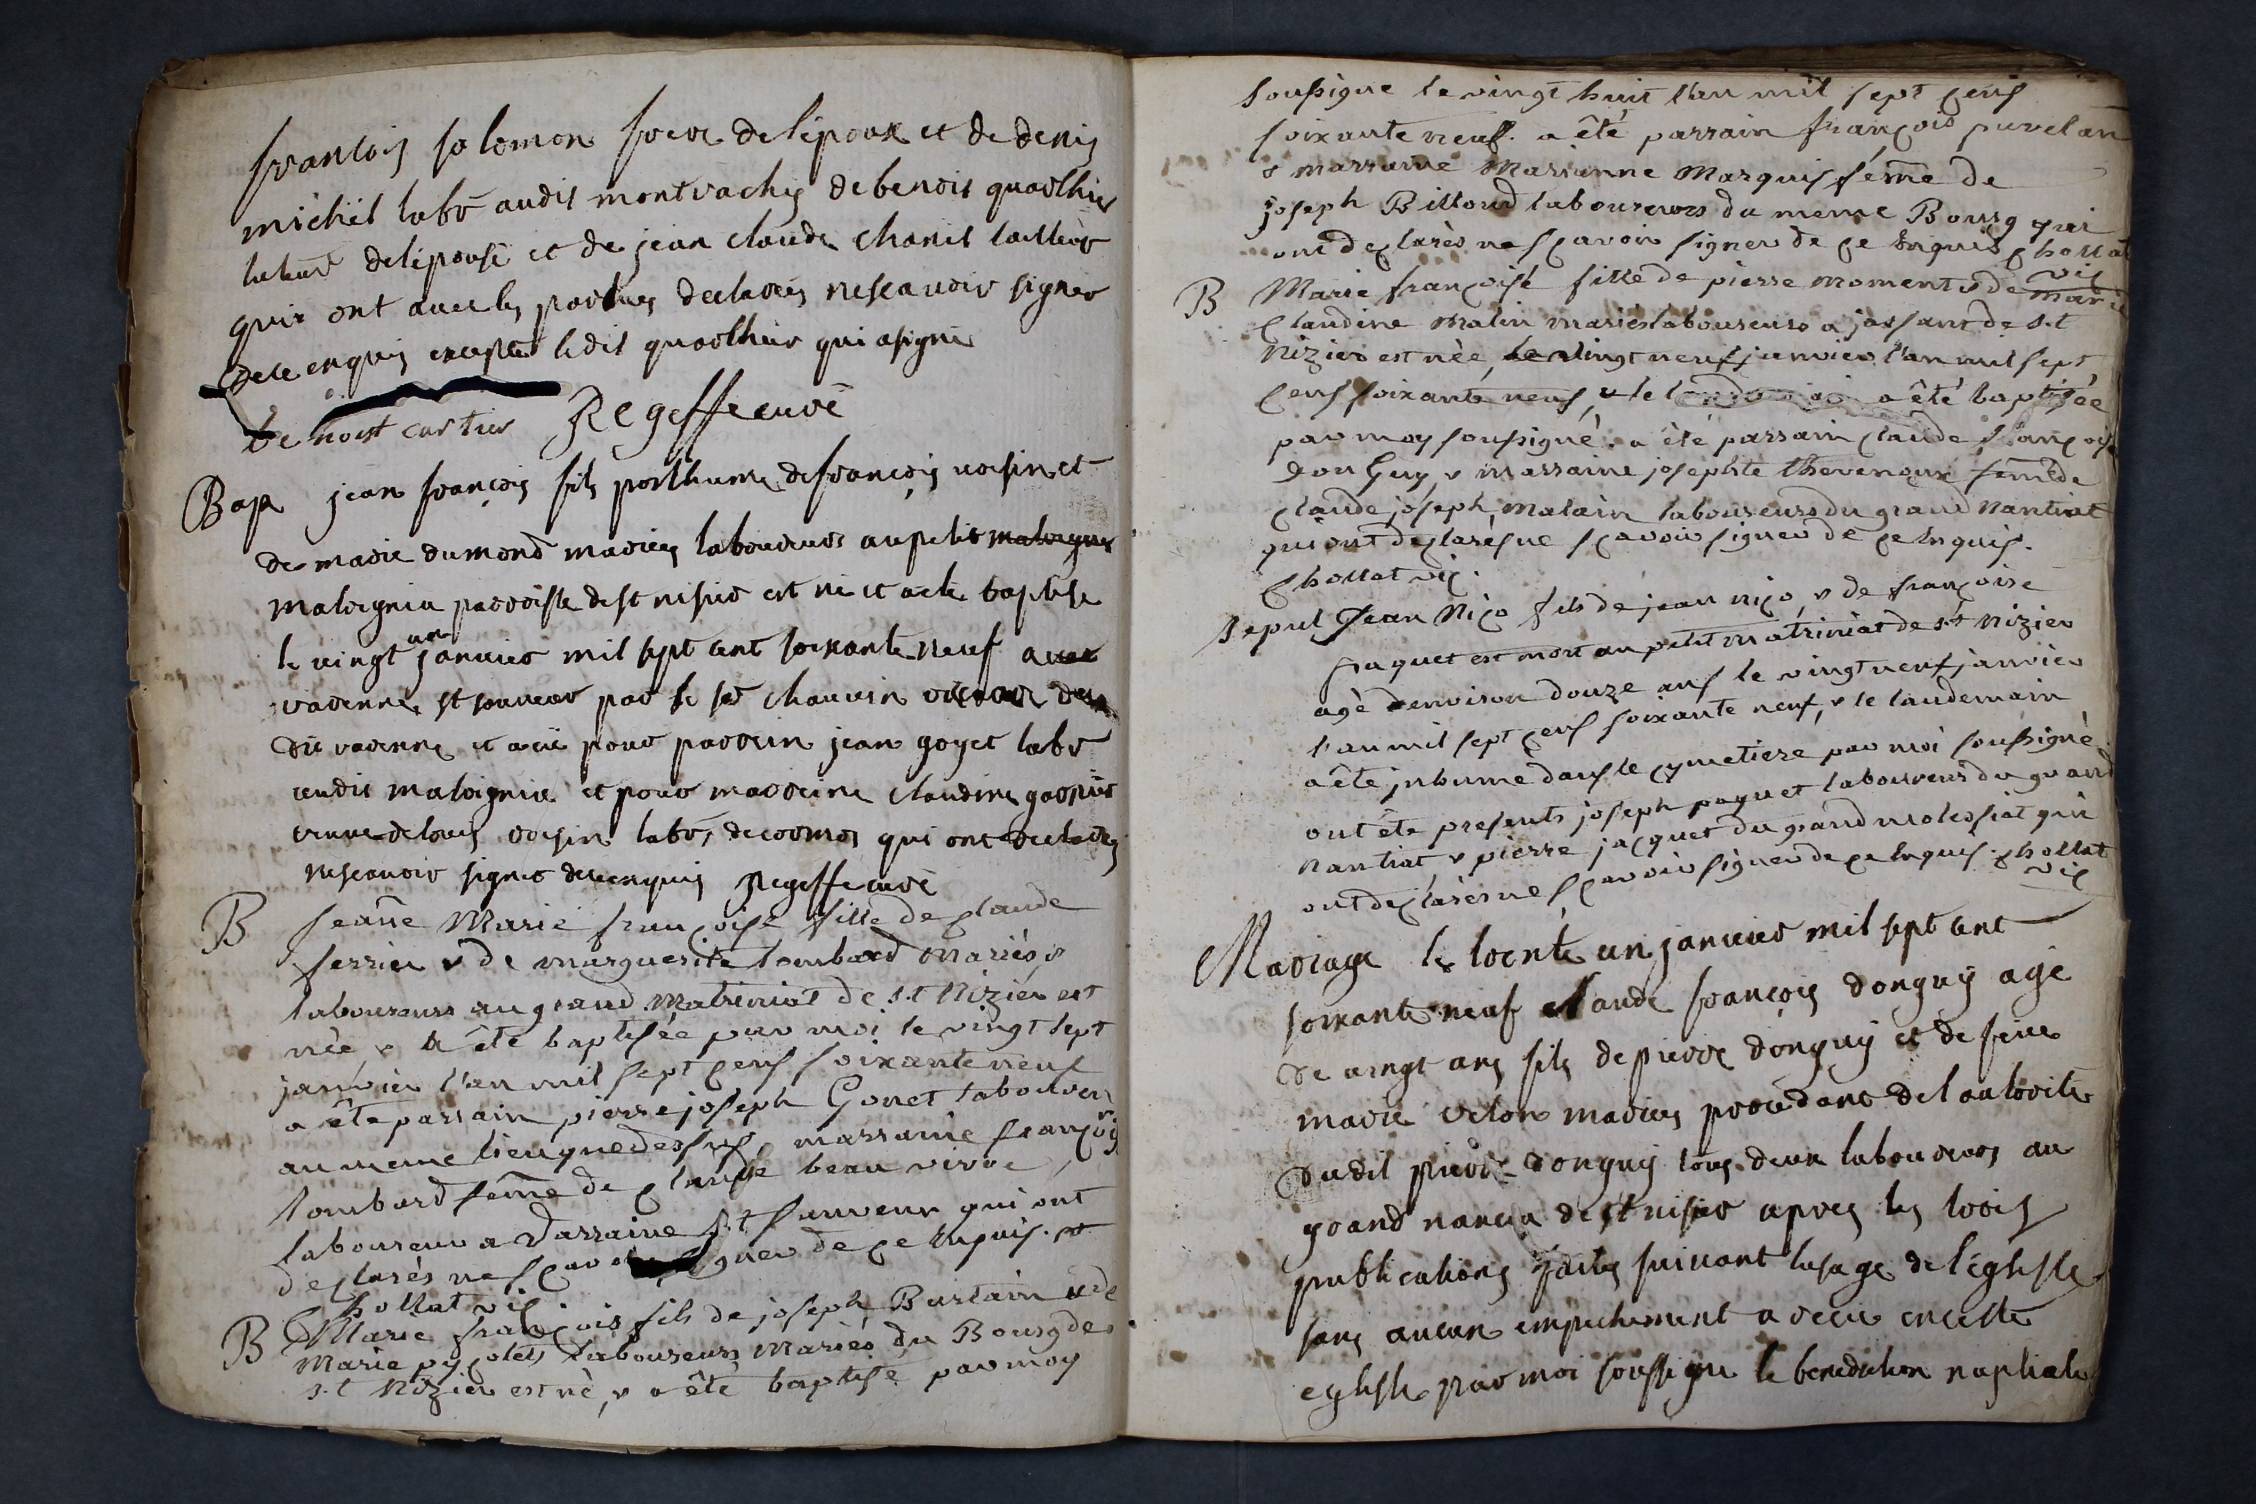 françois solomon frere de lépoux et de denis
michel labr audit montrachy de benoit quarthier
tuteur delépouse et de jean claude chanel tailleur
quir ont avec les parties declarés nescavoir signer
dece enquis excepté ledit quarthier qui asigné
benoist cartier Regeffe curé
Bap jean françois fils posthume defrançois voisin et
de marie dumond mariés laboureurs aupetit malvigneu
malvigneu parroisse de st nisier est né et a eté baptisé
le vingt un janvier mil sept cent soixante neuf avec
varenne st sauveur par le sr chauvin vicaire de
dit varenne et a eü pour parrein jean goyet labr
audit malvignia et pour marreine claudine
veuve delouis voisin labr, decormos qui ont declarés
nescavoir signer dece enquis Regeffe curé
B Jeañe Marie françoise fille de claude
ferrier & de marguerite lombard Mariés
laboureurs au grand Matriniat de s.t Nizier est
née & a été baptisée par moi le vingt sept
janvier l'an mil sept cens soixante neuf
a été parrain pierre joseph Gonet laboureur
au meme lieu que dessus, marraine françoise
lombard feme de claude beau virve,
laboureur a Varraine s.t sauveur qui ont
declarés ne scavoir signer de ce enquis.
Chollat vic
B Marie françois fils de joseph Burtain & de
Marie pycolets laboureurs Mariés du Bourg de
s.t Nizier est né, & a été baptisé par moy
soussigné le vingt huit l'an mil sept cens
soixante neuf. a été parrain françois puvelan
& marraine Marianne Marquis féme de
joseph Billoud laboureurs du meme Bourg qui
ont declarés ne scavoir signer de ce enquis chollat
vic
B Marie françoise fille de pierre moment & de marie
claudine Malin mariés laboureurs a jassant de s.t
Nizier est née, le vingt neuf janvier l'an mil sept
cens soixante neuf, & le lendemain a été baptisée
par moy soussigné. a été parrain claude françois
Don Guy & marraine josephte thevenoux feme de
claude joseph malain laboureurs du grand Nantiat
qui ont declarés ne scavoir signer de ce enquis.
Chollat vic.
Sepul Jean Nizo fils de jean nizo, & de françoise
paquet est mort au petit Matriniat de s.t Nizier
agé denviron douze ans le vingt neuf janvier
l'an mil sept cens soixante neuf, & le landemain
a été jnhumé dans le cymetiere par moi soussigné
ont été presents joseph paquet laboureur du grand
Nantiat & pierre jacquet du grand molessiat qui
ont declarés ne scavoir signer de ce enquis. chollat
vic
Mariage le trente un janvier mil sept cent
soixante neuf claude françois donguy agé
de vingt ans fils de pierre donguy et de feüe
marie velon mariés procedant de l autorité
dudit pierre donguy tous deux laboureurs au
grand nancia de st nisier apres les trois
publications faites suivant lusage de l'églisse
sans aucun empechement a reçu en cette
eglisse par moi soussigné la benediction nuptiale